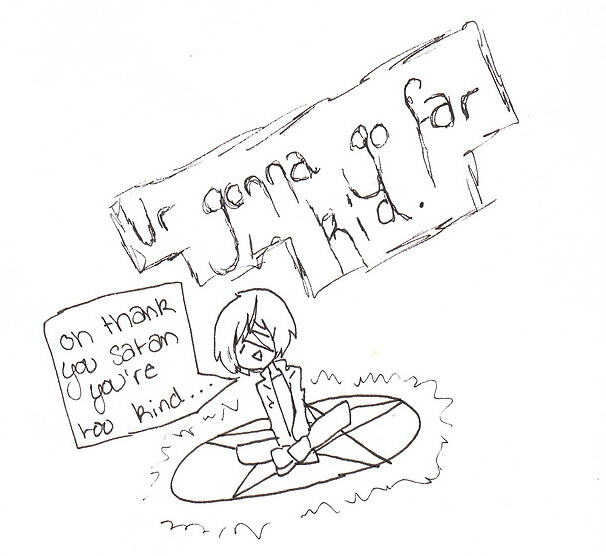 Ur gonna go far
kid.
oh thank
you satan
you're
too kind...